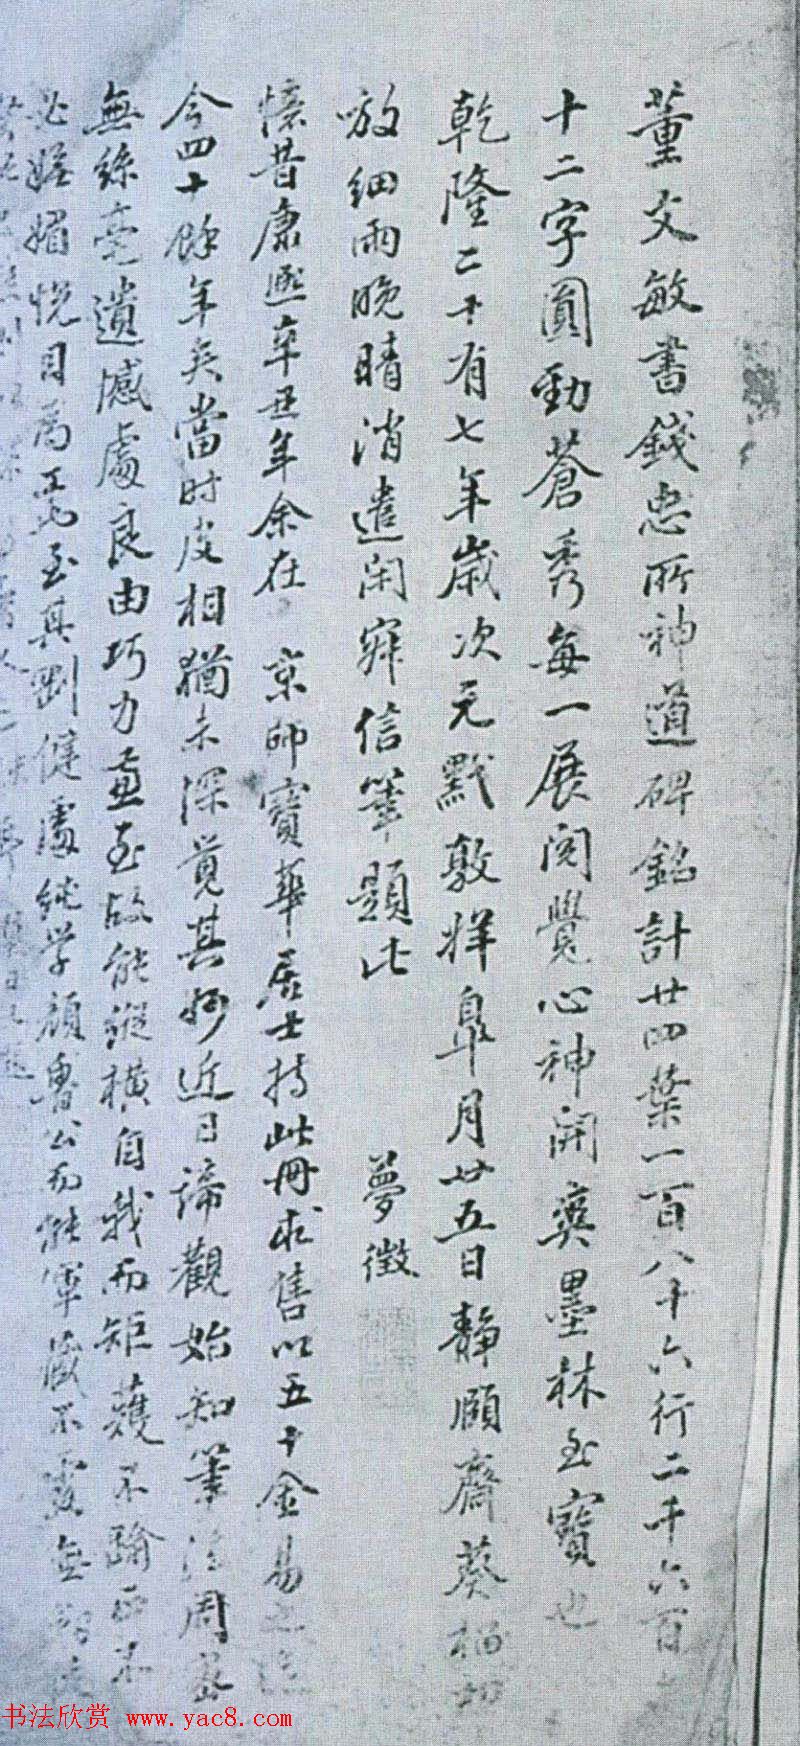 董文敏書錢忠所神道碑銘計廿四葉一百八十六行二千六百
十二字圓勁蒼秀每一展閱覺心神開爽墨林至寶也
乾隆二十有七年歲次元黓敦牂皐月廿五日静頤齋葵榴初
放細雨晚晴消遣閑寂信筆題此 夢徵
憶昔康熙辛丑年余在 京師寶華居士持此冊求售以五十金易之迄
今四十餘年矣當时皮相猶未深覓其妙近日諦觀始知筆法周密
無絲毫遺憾處良由巧力兼至故能縱橫自我而矩蒦不踰正不
必姿媚悅目為工也至其剛健處純学顏魯公而能渾藏不露無
书法欣赏 www.yac8.com